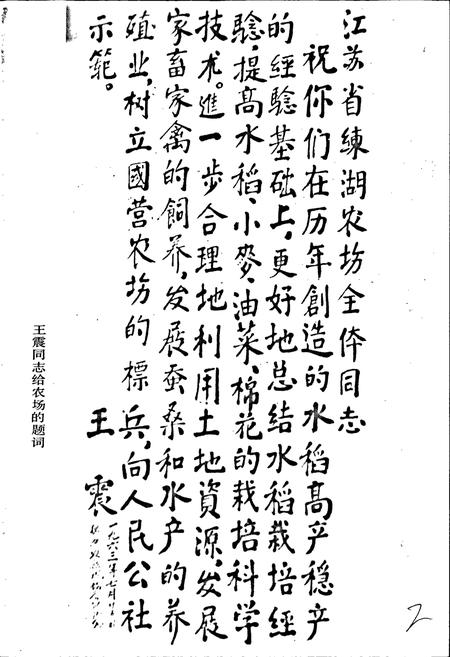 江苏省練湖农坊全体同志
祝你们在历年創造的水稻高产穩产
的經驗基础上,更好地总结水稻栽培經
驗,提高水稻、小麥、油菜、棉花的栽培科学
技术。進一步合理地利用土地資源,发展
家畜家禽的飼养,发展蚕桑和水产的养
殖业,树立國营农坊的標兵,向人民公社
示範。
王震
一九六三年七月
王震同志给农场的题词
2